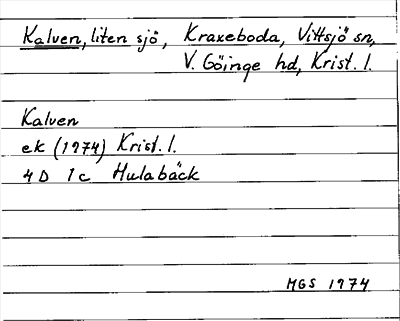 Kalven, liten sjö, Kraxeboda, Vittsjö sn,
V. Göinge hd, Krist. l.
Kalven
ek (1974) Krist. l.
4D 1c Hulabäck
MGS 1974